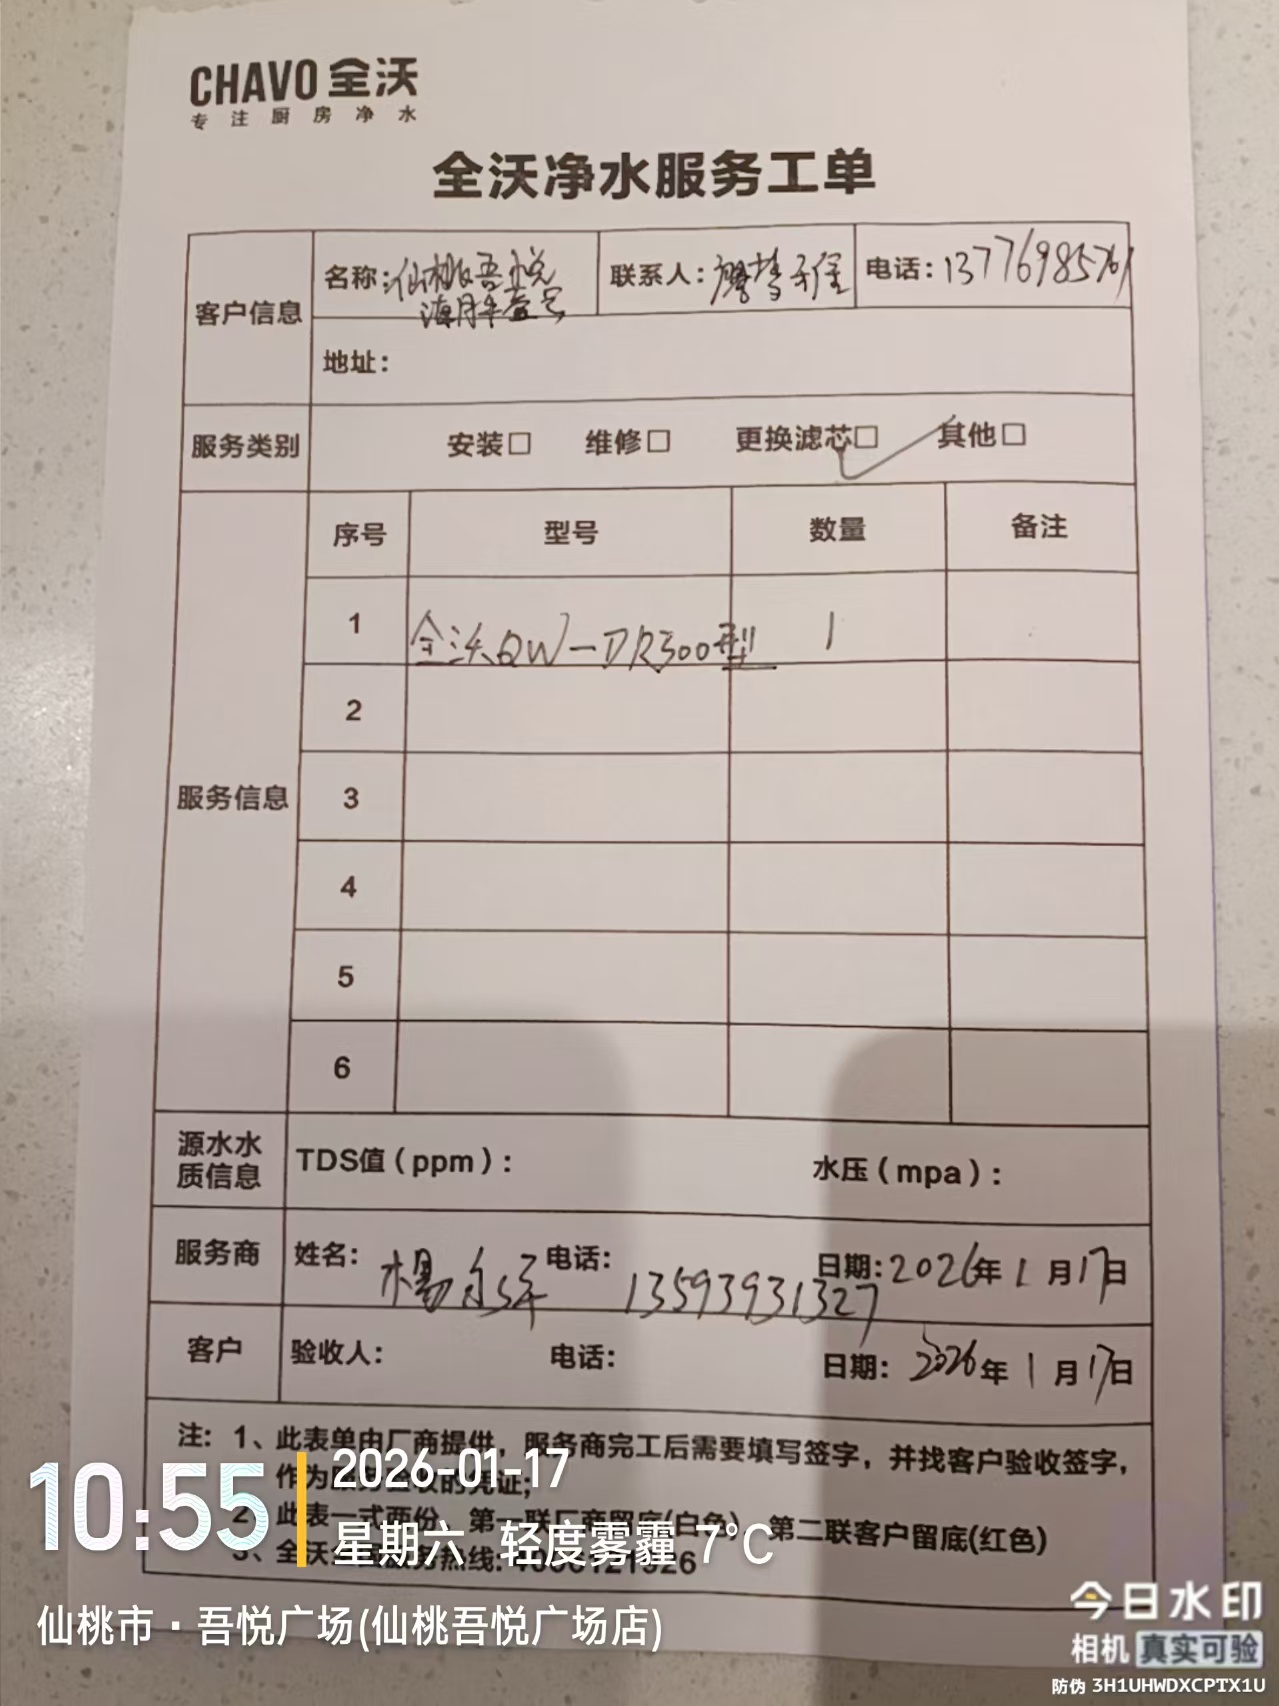 CHAVO 全沃
专注厨房净水
全沃净水服务工单
客户信息 名称:仙桃吾悦 联系人: 电话:13776985761
地址:
服务类别 安装□ 维修□ 更换滤芯□ 其他□
服务信息 序号 型号 数量 备注
1 全沃QW-DR500型 1
2
3
4
5
6
源水水质信息 TDS值(ppm): 水压(mpa):
服务商 姓名:杨 电话:13593931327 日期:2026年1月17日
客户 验收人: 电话: 日期:2026年1月17日
注:1、此表单由厂商提供,服务商完工后需要填写签字,并找客户验收签字,
作为 的凭证;
2、此表一式两份,第一联厂商留底(白色),第二联客户留底(红色)
3、全沃 务热线:
10:55
2026-01-17
星期六 轻度雾霾 7°C
仙桃市·吾悦广场(仙桃吾悦广场店)
今日水印
相机 真实可验
防伪 3H1UHWDXCPTX1U